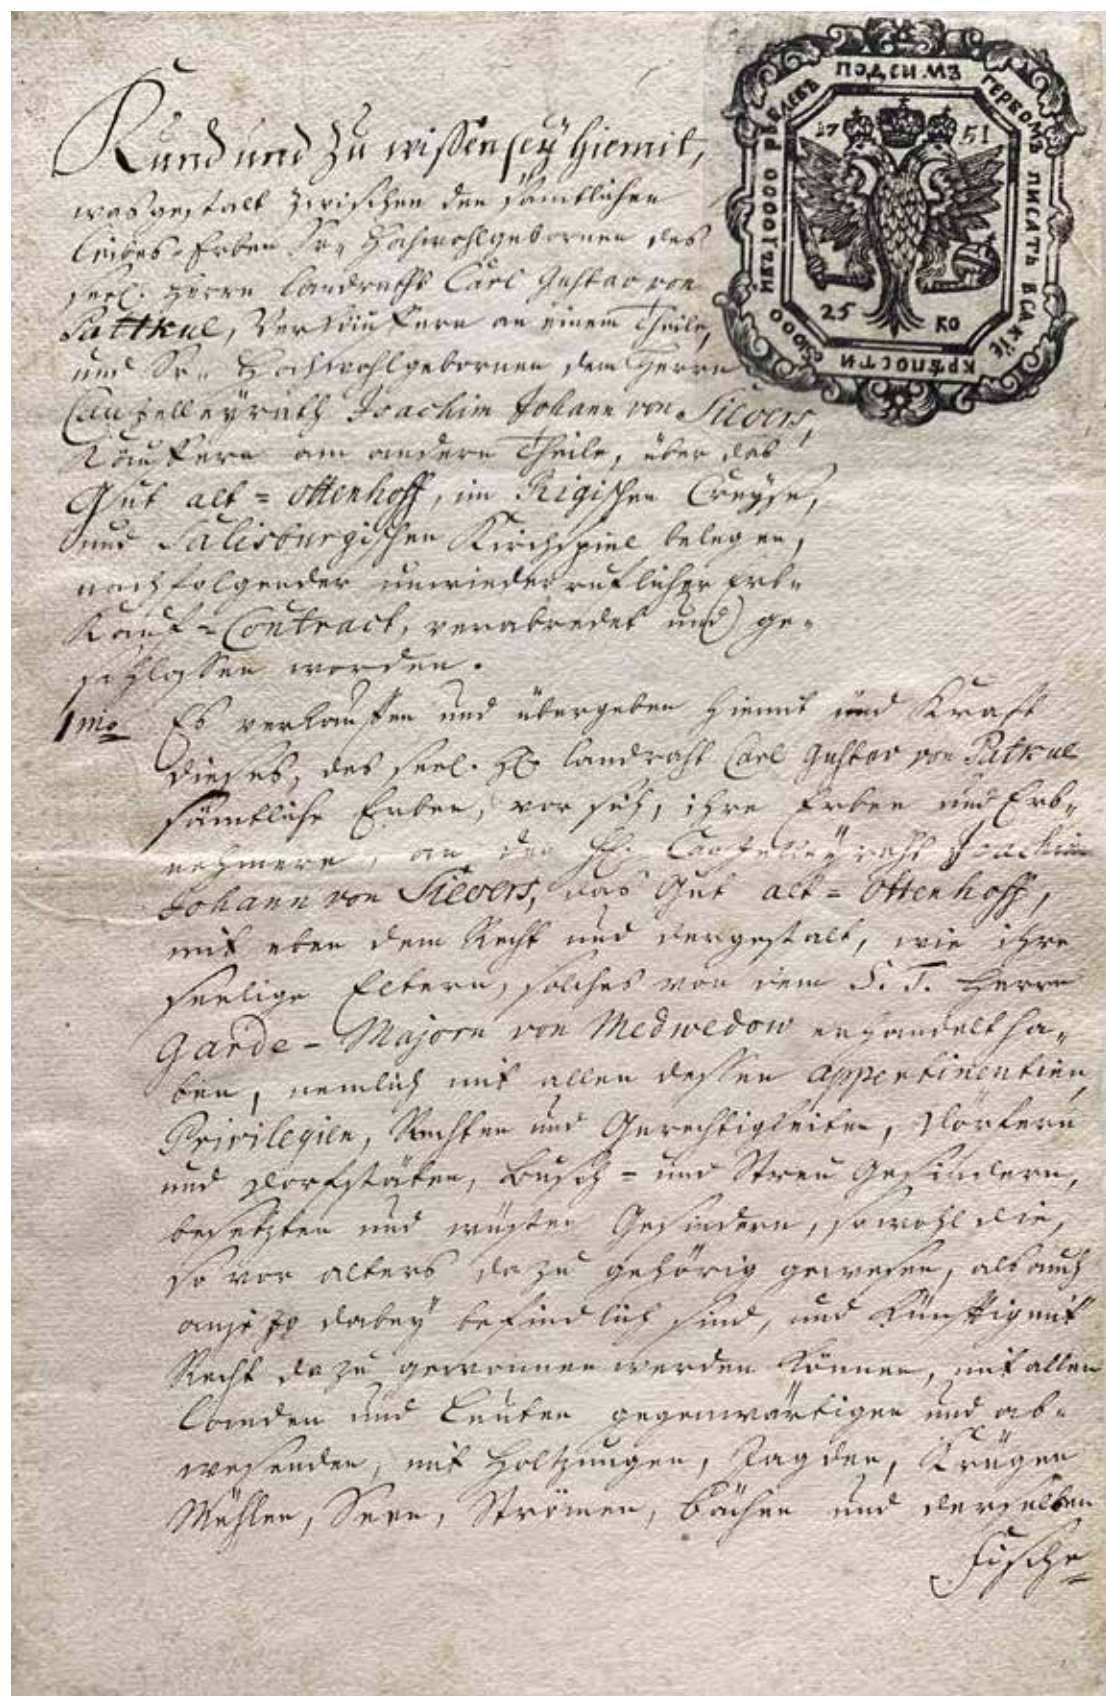 Kund und zu wissen sey hiemit,
wasgestalt zwischen den sämtlichen
Leibes-Erben Sr. Hochwohlgebornen des
seel. Herrn Landraths Carl Gustav von
Pattkul, Verkäufern an einem Theile,
und Sr. Hochwohlgebornen dem Herrn
Cantzelleyrath Joachim Johann von Sievers,
Käufern am andern Theile, über das
Guth alt=Ottenhoff, im Rigischen Creyse,
und Salisburgischen Kirchspiel belegen,
nachfolgender unwiederruflicher Erb=
Kauf=Contract, verabredet und ge=
schlossen worden.
1mo Es verkauffen und übergeben hiemit und Kraft
dieses, des seel. H. Landraht Carl Gustav von Patkul
sämtliche Erben, vor sich, ihre Erben und Erb=
nehmere, an den H. Cantzelleyraht Joachim
Johann von Sievers, das Gut alt=Ottenhoff,
mit eben dem Recht und dergestalt, wie ihre
seelige Eltern, solches von dem S. T. Herrn
Garde-Majorn von Medwedow erhandelt ha=
ben, nemlich mit allen dessen Appertinentien,
Privilegien, Rechten und Gerechtigkeiten, Dörfern
und Dorfstäten, Busch= und Streu Gesindern,
besetzten und wüsten Gesindern, sowohl die,
so vor alters dazu gehörig gewesen, als auch
anjetzo dabey befindlich sind, und künfftig mit
Recht dazu gewonnen werden können, mit allen
Landen und Leuten gegenwärtigen und ab=
wesenden, mit Holtzungen, Jagden, Krügen
Mühlen, Seen, Strömen, Bächen und derselben
Fische=
ПОД СИМЪ ГЕРБОМЪ ПИСАТЬ ВСАКIЕ КРѢПОСТИ
17 51
25 КО